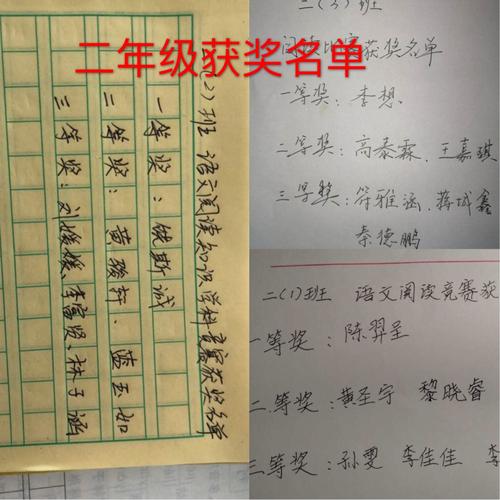 二年级获奖名单
二(2)班 语文阅读知识学科竞赛获奖名单
一等奖:饶斯诚
二等奖:黄骏轩、蓝玉如
三等奖:刘媛媛、李富贤、林子涵
二(3)班
阅读比赛获奖名单
一等奖:李想
二等奖:高泰霖、王嘉琪
三等奖:符雅涵、蒋城鑫
秦德鹏
二(1)班 语文阅读竞赛获
一等奖:陈羿呈
二等奖:黄圣宇 黎晓睿
三等奖:孙雯 李佳佳 李